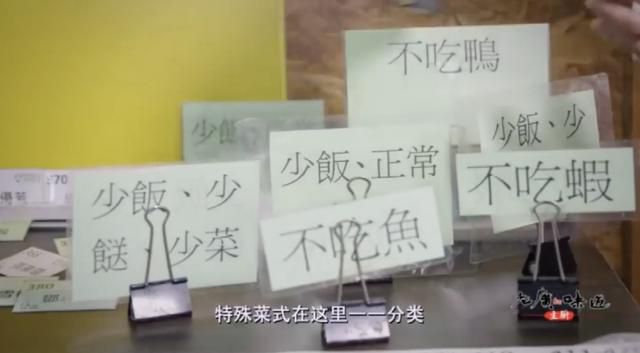 不吃鴨
少飯、少
少飯
少飯、正常
不吃蝦
少飯、少
餸、少菜
不吃魚
370
380
特殊菜式在这里一一分类
味道
主廚